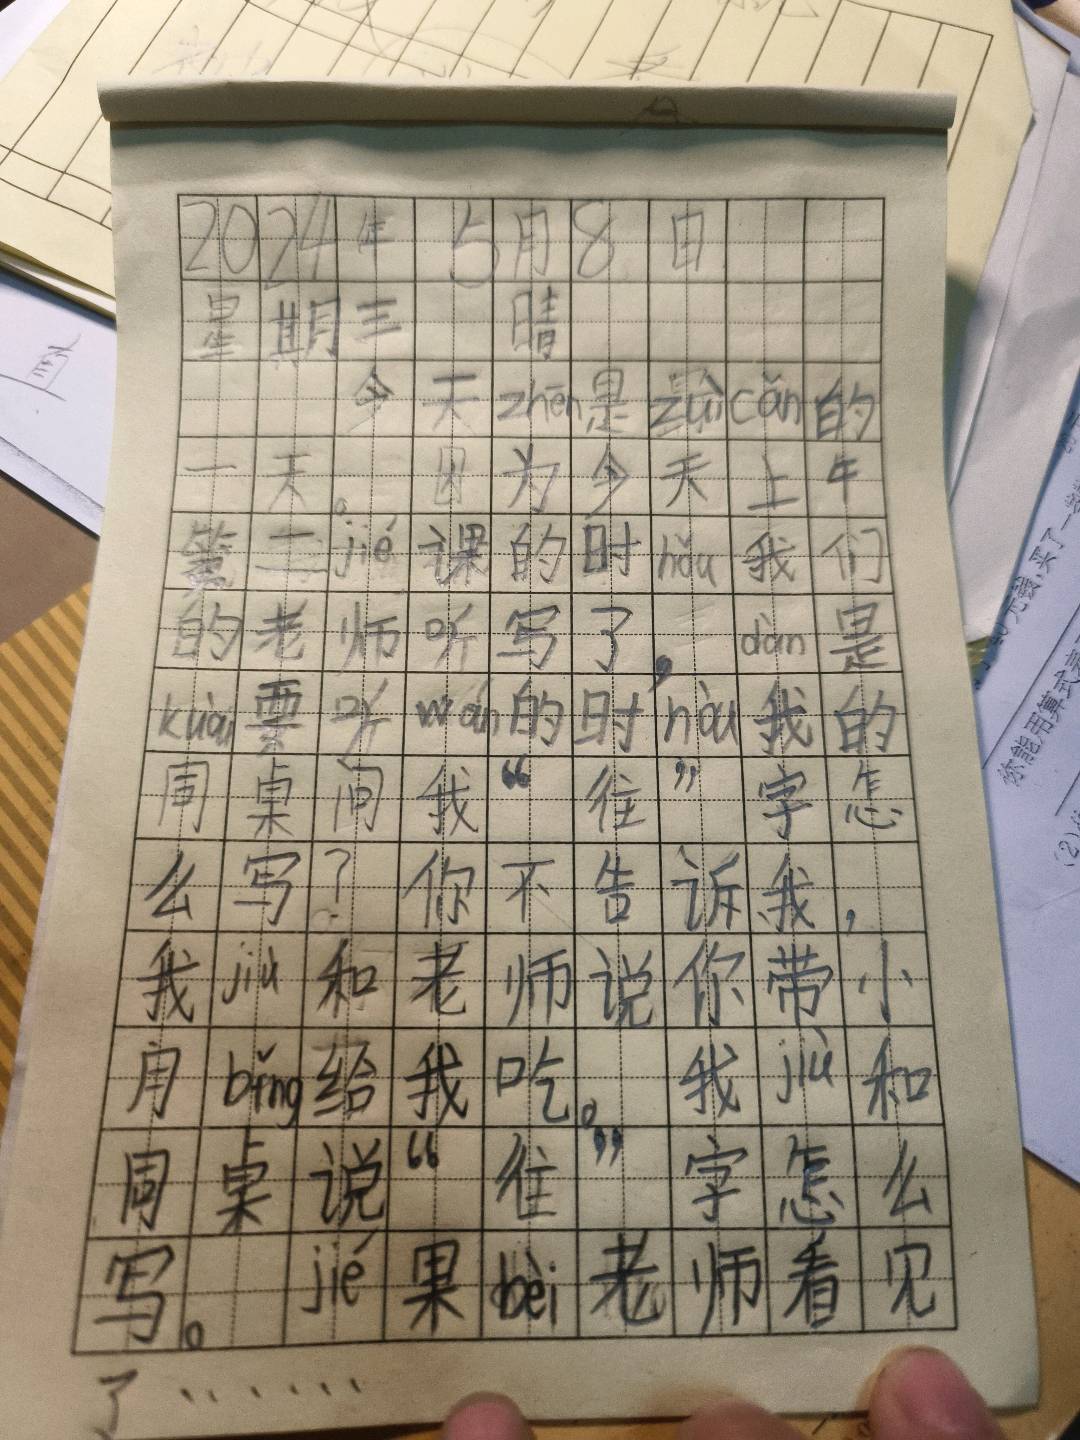 2024年 5月8日
星期三 晴
今天zhēn是zuìcǎn的
一天。因为今天上午
第二jié课的时hòu我们
的老师听写了，dàn是
kuài要听wán的时hòu我的
同桌问我“往”字怎
么写？你不告诉我，
我jiù和老师说你带小
月bǐng给我吃。我jiù和
同桌说“往”字怎么
写。 jié果bèi老师看见
了······
你能否算式表
(2)